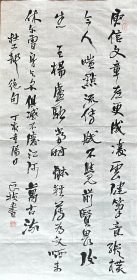 庾信文章老更成凌雲健筆意縱橫
今人嗤點流傳賦不覺前賢畏後
生王楊盧駱當時體輕薄為文哂未
休尔曹身与名俱滅不廢江河萬古流
杜工部絕句